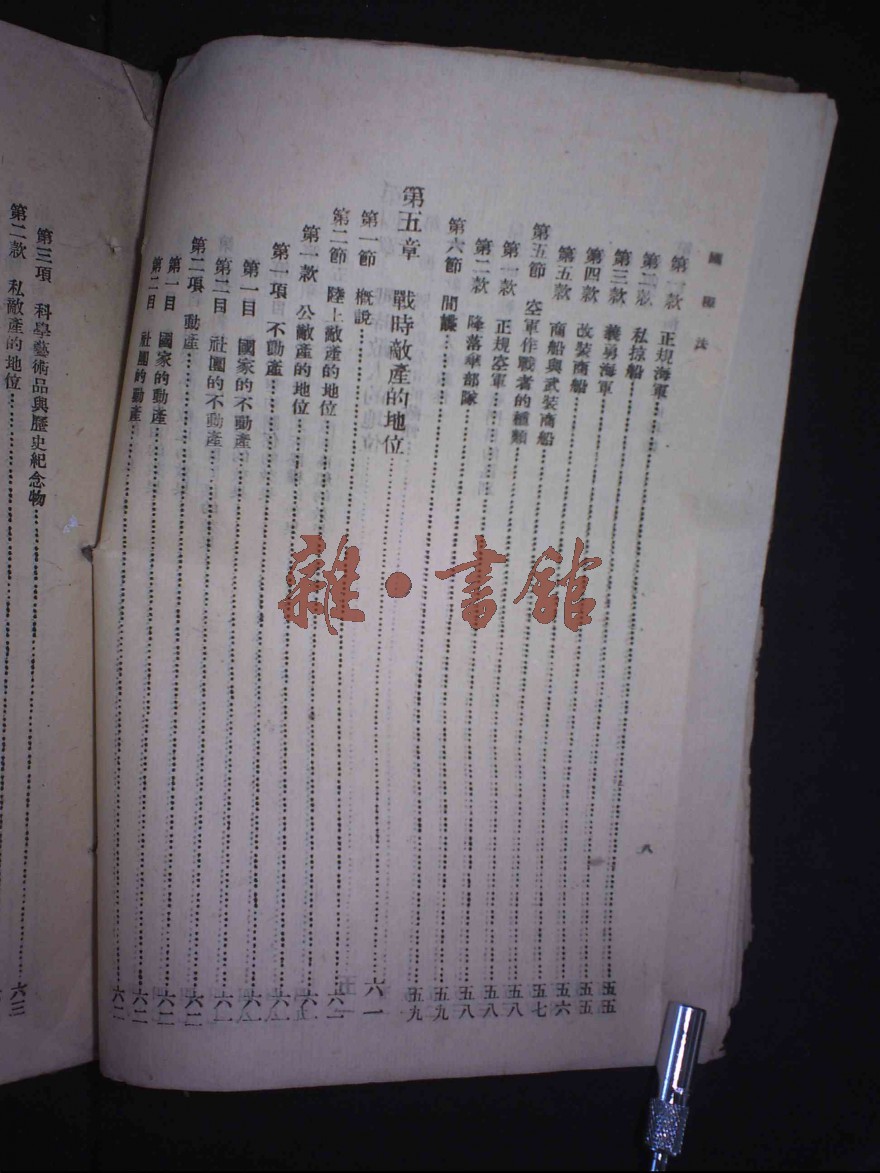 國際法
八
第一款 正規海軍……五五
第二款 私掠船……五五
第三款 義勇海軍……五六
第四款 改裝商船……五七
第五款 商船與武裝商船……五八
第五節 空軍作戰者的種類……五八
第一款 正規空軍……五八
第二款 降落傘部隊……五九
第六節 間諜……五九
第五章 戰時敵產的地位……六一
第一節 概說……六一
第二節 陸上敵產的地位……六一
第一款 公敵產的地位……六一
第一項 不動產……六一
第一目 國家的不動產……六一
第二目 社團的不動產……六二
第二項 動產……六二
第一目 國家的動產……六二
第二目 社團的動產……六二
第三項 科學藝術品與歷史紀念物……
第二款 私敵產的地位……六三
雜·書館